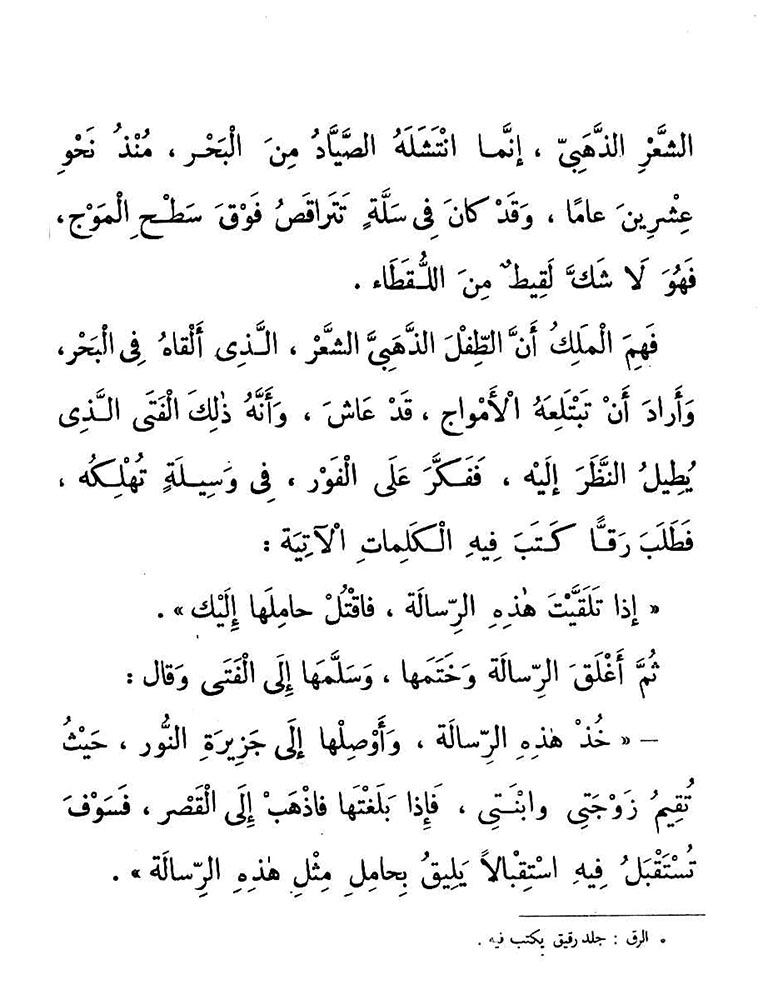 الشَّعْرِ الذَّهَبِيّ ، إنَّمـا انْتَشَلَهُ الصَّيَّادُ مِنَ الْبَحْـر ، مُنْذُ نَحْوِ
عِشْرِينَ عامًا ، وَقَدْ كانَ فِى سَلَّةٍ تَتَراقَصُ فَوْقَ سَطْحِ الْمَوْج،
فَهُوَ لَا شَكَّ لَقِيطٌ مِنَ اللُّـقَطَاء .
فَهِمَ الْمَلِكُ أَنَّ الطِّفْلَ الذَّهَبِيَّ الشَّعْر ، الَّـذِى أَلْقاهُ فِى الْبَحْر،
وَأَرادَ أَنْ تَبْتَلِعَهُ الْأَمْواج ، قَدْ عَاشَ ، وَأَنَّهُ ذٰلِكَ الْفَتَى الَّـذِى
يُطِيلُ النَّظَرَ إِلَيْه ، فَفَـكَّرَ عَلَى الْفَوْر ، فِى وَسِيـلَةٍ تُهْلِـكُه ،
فَطَلَبَ رَقـًّا كَـتَبَ فِيهِ الْـكَلِماتِ الْآتِيَة :
« إذا تَلَقَّيْتَ هٰذِهِ الرِّسالَة ، فاقْتُلْ حامِلَها إِلَيْك » .
ثُمَّ أَغْلَقَ الرِّسالَة وَخَتَمَها ، وَسَلَّمَهَا إِلَى الْفَتَى وَقال :
– « خُذْ هٰذِهِ الرِّسالَة ، وَأَوْصِلْها إِلَى جَزِيرَةِ النُّور ، حَيْثُ
تُقِيمُ زَوْجَتِى وابْنَـتِى ، فَإِذا بَلَغْتَها فاذْهَبْ إِلَى الْقَصْر ، فَسَوْفَ
تُسْتَقْبَلُ فِيهِ اسْتِقْبالاً يَلِيقُ بِحامِلِ مِثْلِ هٰذِهِ الرِّسالَة » .
• الرق : جلد رقيق يكتب فيه .